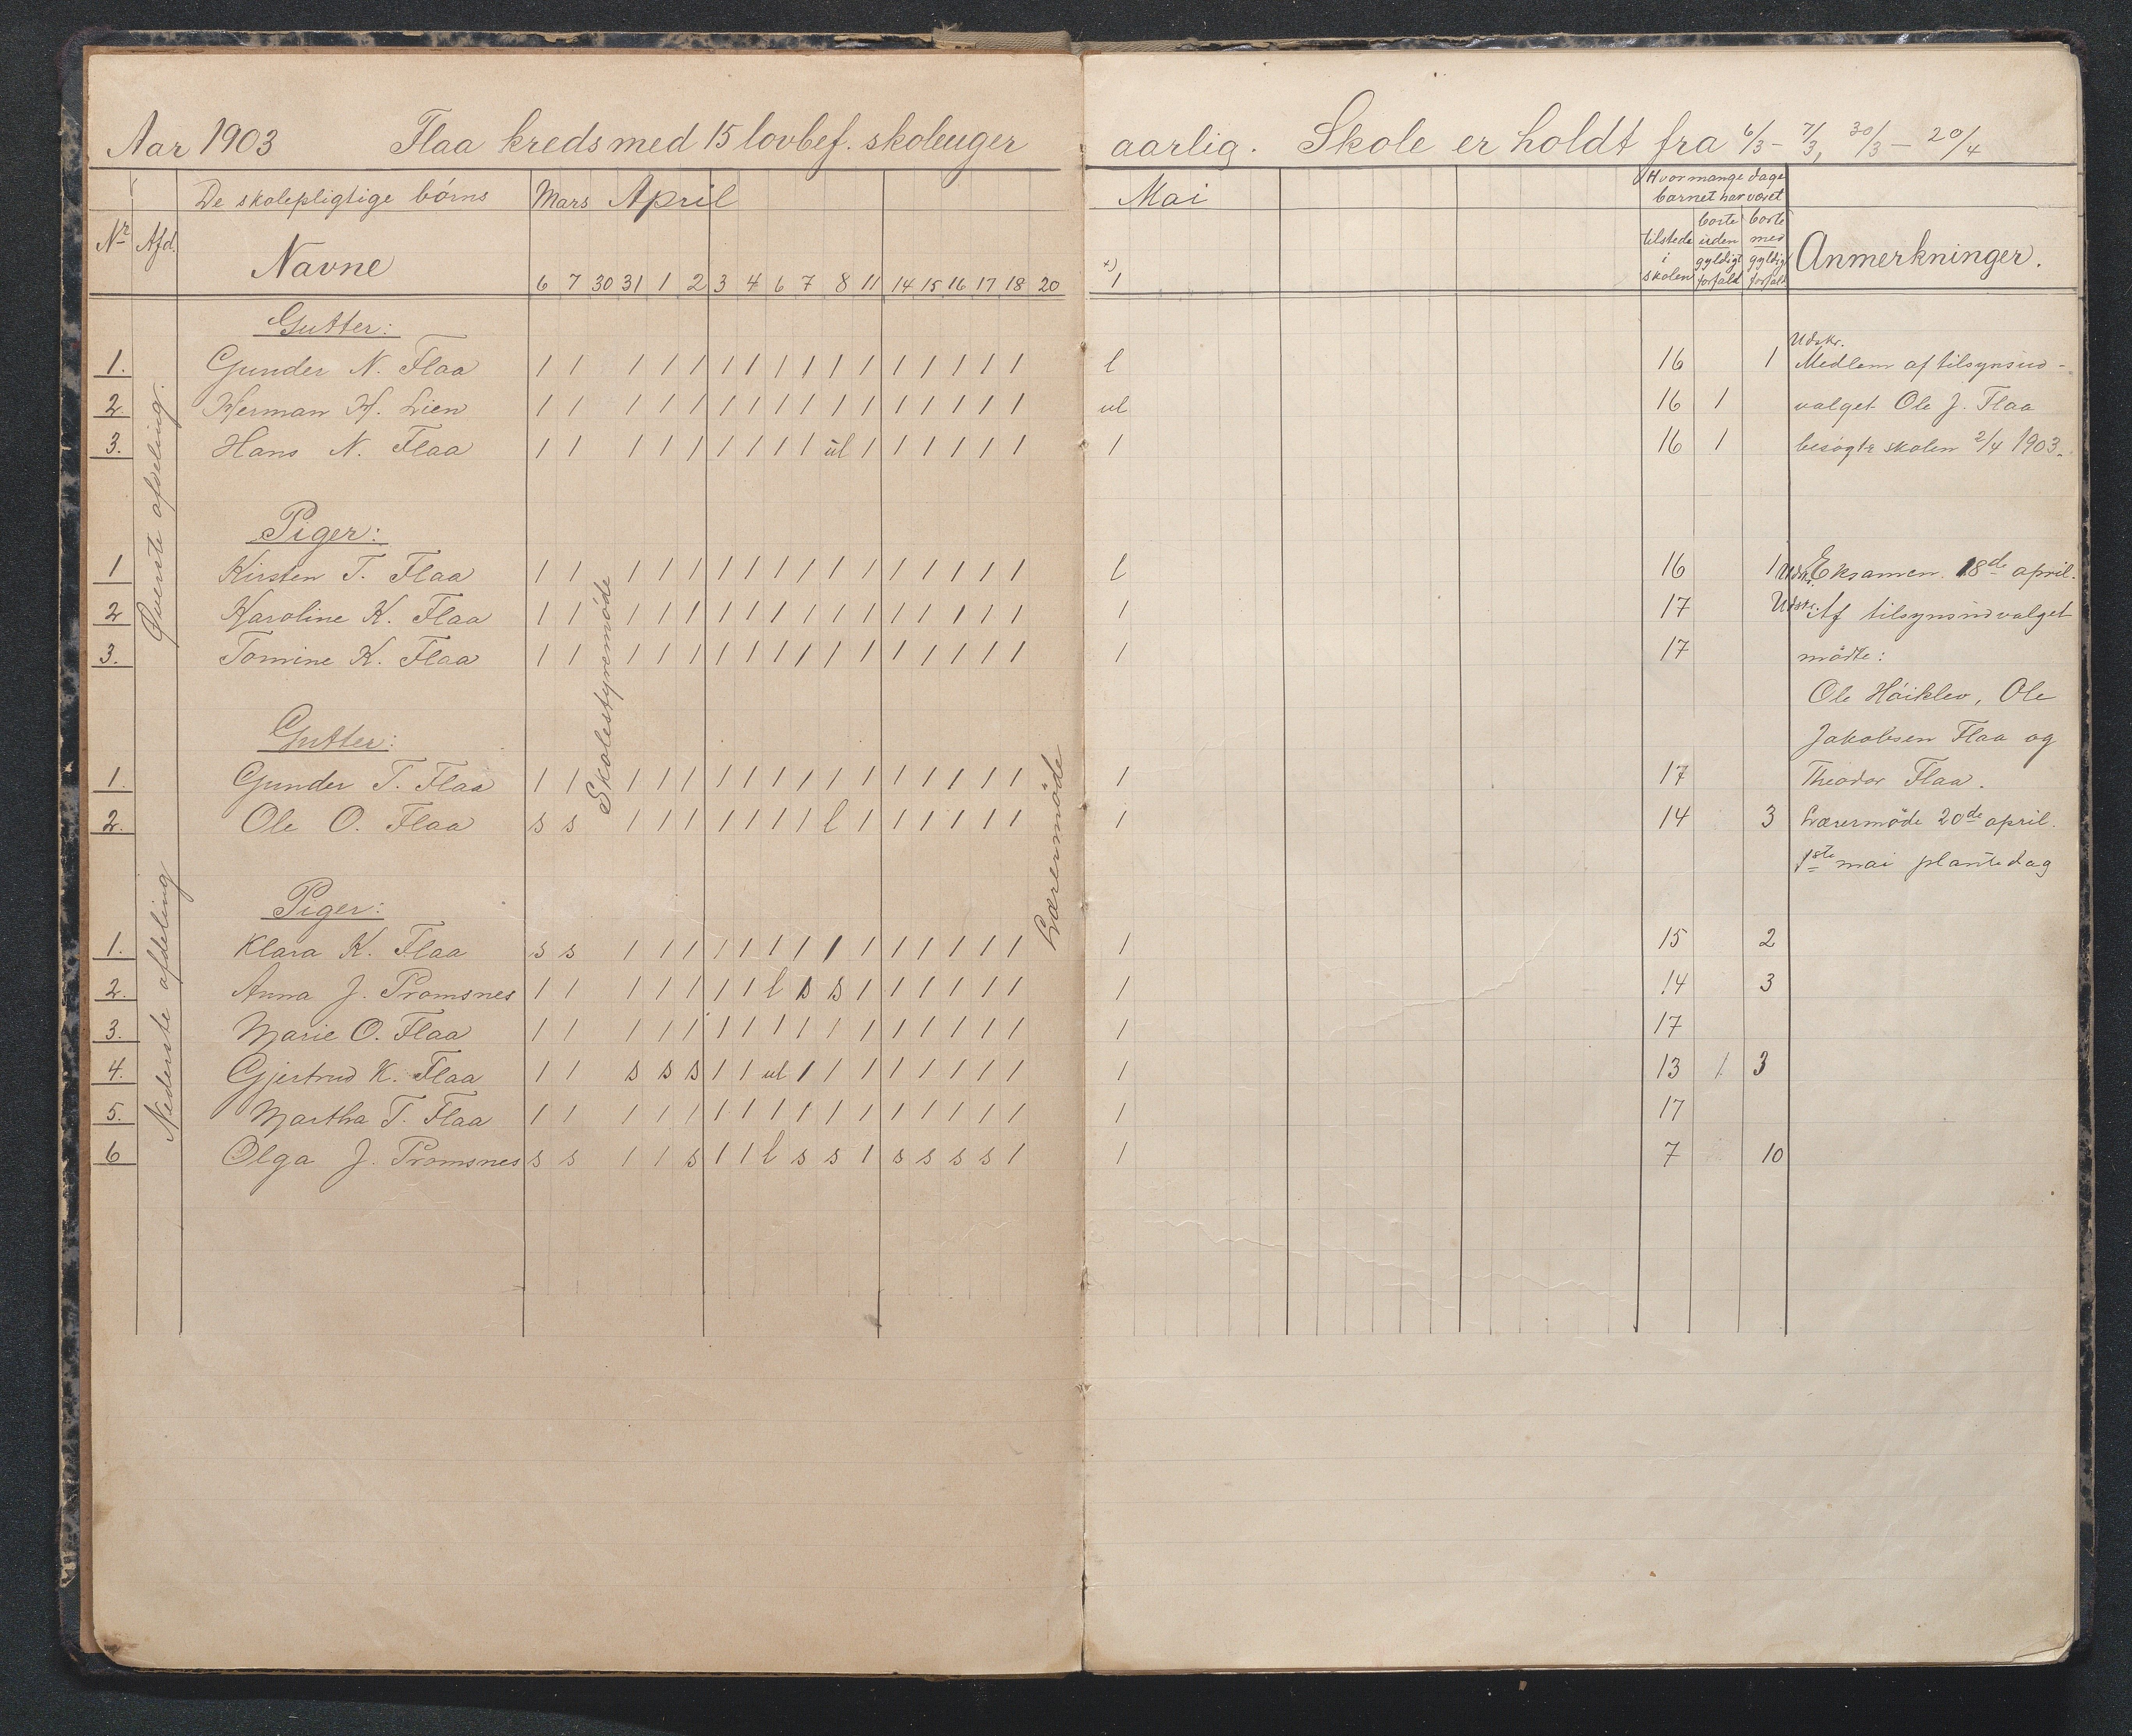 Aar 1903 Flaa kreds med 15 lovbef. skoleuger aarlig. Skole er holdt fra 6/3 - 7/3, 30/3 - 20/4
De skolepligtige børns Mars April Mai Hvormange dage
barnet har været
Nr Afd. Navne tilstede i skolen borte uden gyldigt forfald borte med gyldigt forfald Anmerkninger.
6 7 30 31 1 2 3 4 6 7 8 11 14 15 16 17 18 20 +) 1
Øverste afdeling.
Gutter:
Udskr.
1. Gunder N. Flaa 1 1 1 1 1 1 1 1 1 1 1 1 1 1 1 1 l 16 1 Medlem af tilsynsud-
2. Herman H. Lien 1 1 1 1 1 1 1 1 1 1 1 1 1 1 1 1 ul 16 1 valget Ole J. Flaa
3. Hans N. Flaa 1 1 1 1 1 1 1 1 1 ul 1 1 1 1 1 1 1 16 1 besøgte skolen 2/4 1903.
Piger:
1 Kirsten T. Flaa 1 1 1 1 1 1 1 1 1 1 1 1 1 1 1 1 l 16 1 Udskr. Eksamen 18de april.
2 Karoline K. Flaa 1 1 1 1 1 1 1 1 1 1 1 1 1 1 1 1 1 17 Udskr. Af tilsynsudvalget
3. Tomine K. Flaa 1 1 1 1 1 1 1 1 1 1 1 1 1 1 1 1 1 17 mødte:
Ole Høiklev, Ole
Skolestyremøde
Lærermøde
Nederste afdeling
Gutter: Jakobsen Flaa og
1. Gunder T. Flaa 1 1 1 1 1 1 1 1 1 1 1 1 1 1 1 1 1 17 Theodor Flaa.
2. Ole O. Flaa s s 1 1 1 1 1 1 1 l 1 1 1 1 1 1 1 14 3 Lærermøde 20de april.
1ste mai plantedag
Piger:
1. Klara K. Flaa s s 1 1 1 1 1 1 1 1 1 1 1 1 1 1 1 15 2
2. Anna J. Promsnes 1 1 1 1 1 1 1 l s s 1 1 1 1 1 1 1 14 3
3. Marie O. Flaa 1 1 1 1 1 1 1 1 1 1 1 1 1 1 1 1 1 17
4. Gjertrud K. Flaa 1 1 s s s 1 1 ul 1 1 1 1 1 1 1 1 1 13 1 3
5. Martha T. Flaa 1 1 1 1 1 1 1 1 1 1 1 1 1 1 1 1 1 17
6 Olga J. Promsnes s s 1 1 s 1 1 l s s 1 s s s s 1 1 7 10